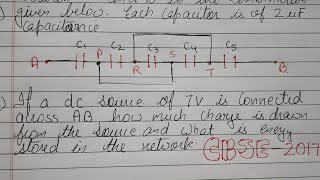 given below. Each Capacitor is of 2 μF
Capacitance
C1 P C2 C3 S C4 C5
A R T B
If a dc source of 7V is connected
across AB, how much charge is drawn
from the source and what is energy
stored in the network. CBSE-2017